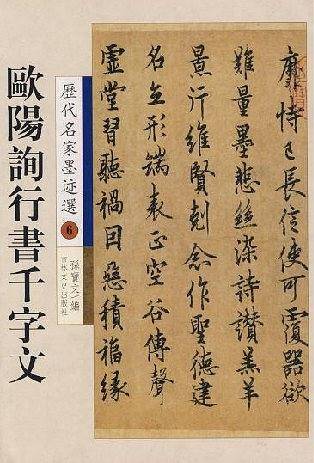 靡恃己長信使可覆器欲
難量墨悲絲染詩讚羔羊
景行維賢剋念作聖德建
名立形端表正空谷傳聲
虛堂習聽禍因惡積福緣
歷代名家墨迹選
6
孫寶文編
吉林文史出版社
歐陽詢行書千字文